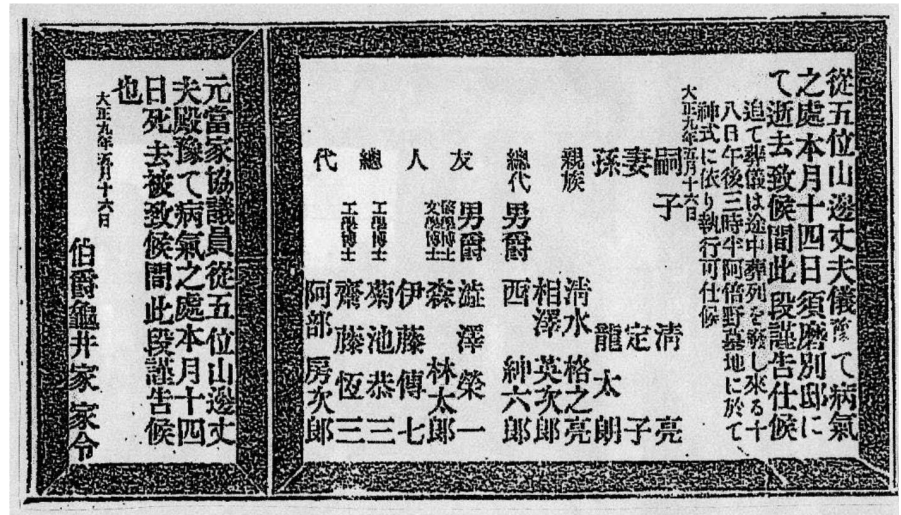 從五位山邊丈夫儀豫て病氣
之處本月十四日須磨別邸に
て逝去致候間此段謹告仕候
追て葬儀は途中葬列を發し來る十
八日午後三時半阿倍野墓地に於て
神式に依り執行可仕候
大正九年五月十六日
嗣子 淸亮
妻 定子
孫 龍太朗
親族 淸水格之亮
相澤英次郎
總代 男爵 西紳六郎
友 男爵 澁澤榮一
醫學博士 文學博士 森林太郎
人 伊藤傳七
總 工學博士 菊池恭三
工學博士 齋藤恆三
代 阿部房次郎
元當家協議員從五位山邊丈
夫殿豫て病氣之處本月十四
日死去被致候間此段謹告候
也
大正九年五月十六日
伯爵龜井家 家令